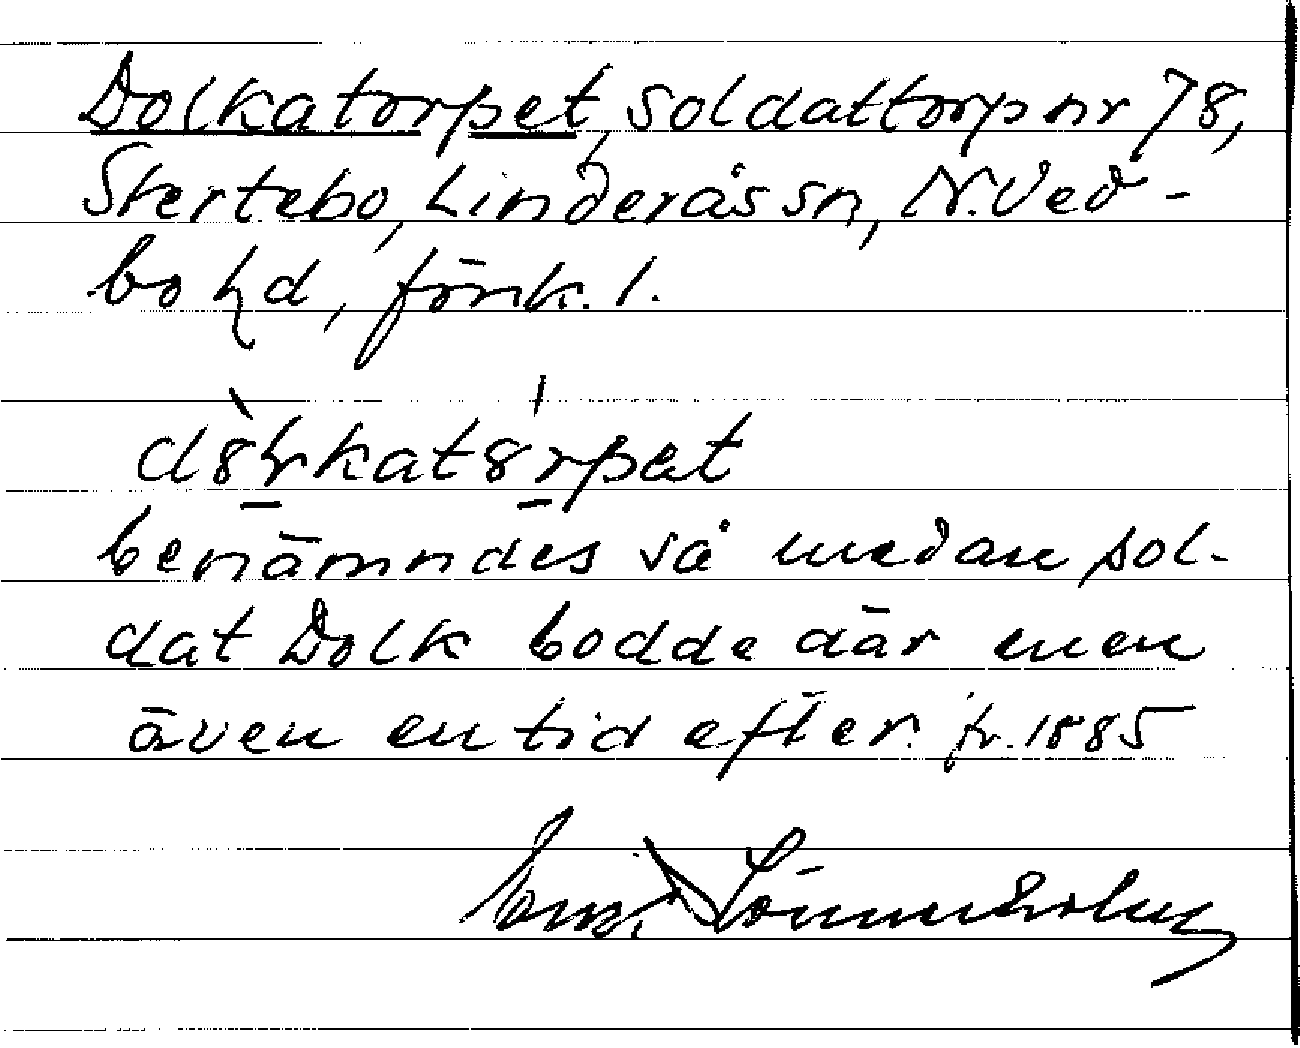 Dolkatorpet, soldattorp nr 78,
Stertebo, Linderås sn, N. Ved-
bo hd, Jönk. l.
benämndes så medan sol-
dat Dolk bodde där men
även en tid efter. fr. 1885